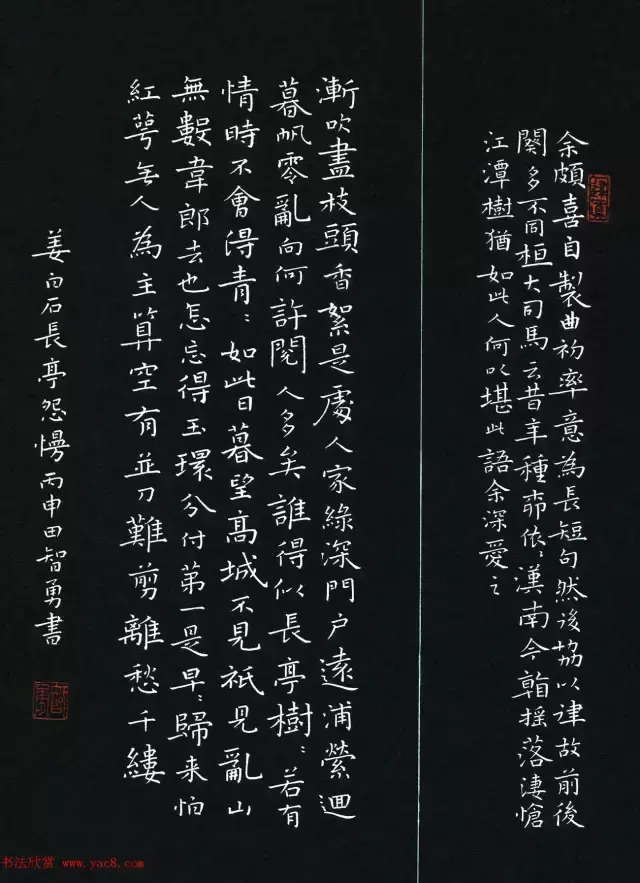 余頗喜自製曲初率意為長短句然後協以律故前後
闋多不同桓大司馬云昔年種柳依：漢南今看摇落淒愴
江潭樹猶如此人何以堪此語余深愛之
漸吹盡枝頭香絮是處人家綠深門户遠浦縈迴
暮帆零亂向何許閱人多矣誰得似長亭樹：若有
情時不會得青：如此日暮望高城不見衹見亂山
無數韋郎去也怎忘得玉環分付第一是早：歸來怕
紅萼無人為主算空有並刀難剪離愁千縷
姜白石長亭怨慢丙申田智勇書
智勇
书法欣赏 www.yac8.com